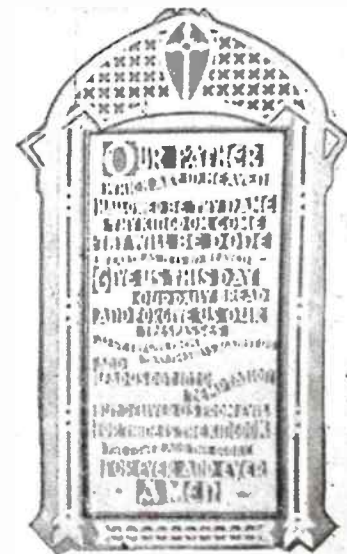 OUR FATHER
WHICH ART IN HEAVEN
HALLOWED BE THY NAME
THY KINGDOM COME
THY WILL BE DONE
GIVE US THIS DAY
OUR DAILY BREAD
AND FORGIVE US OUR
TRESPASSES
AND
LEAD US NOT INTO
TEMPTATION
BUT DELIVER US FROM EVIL
FOR THINE IS THE KINGDOM
FOR EVER AND EVER
AMEN